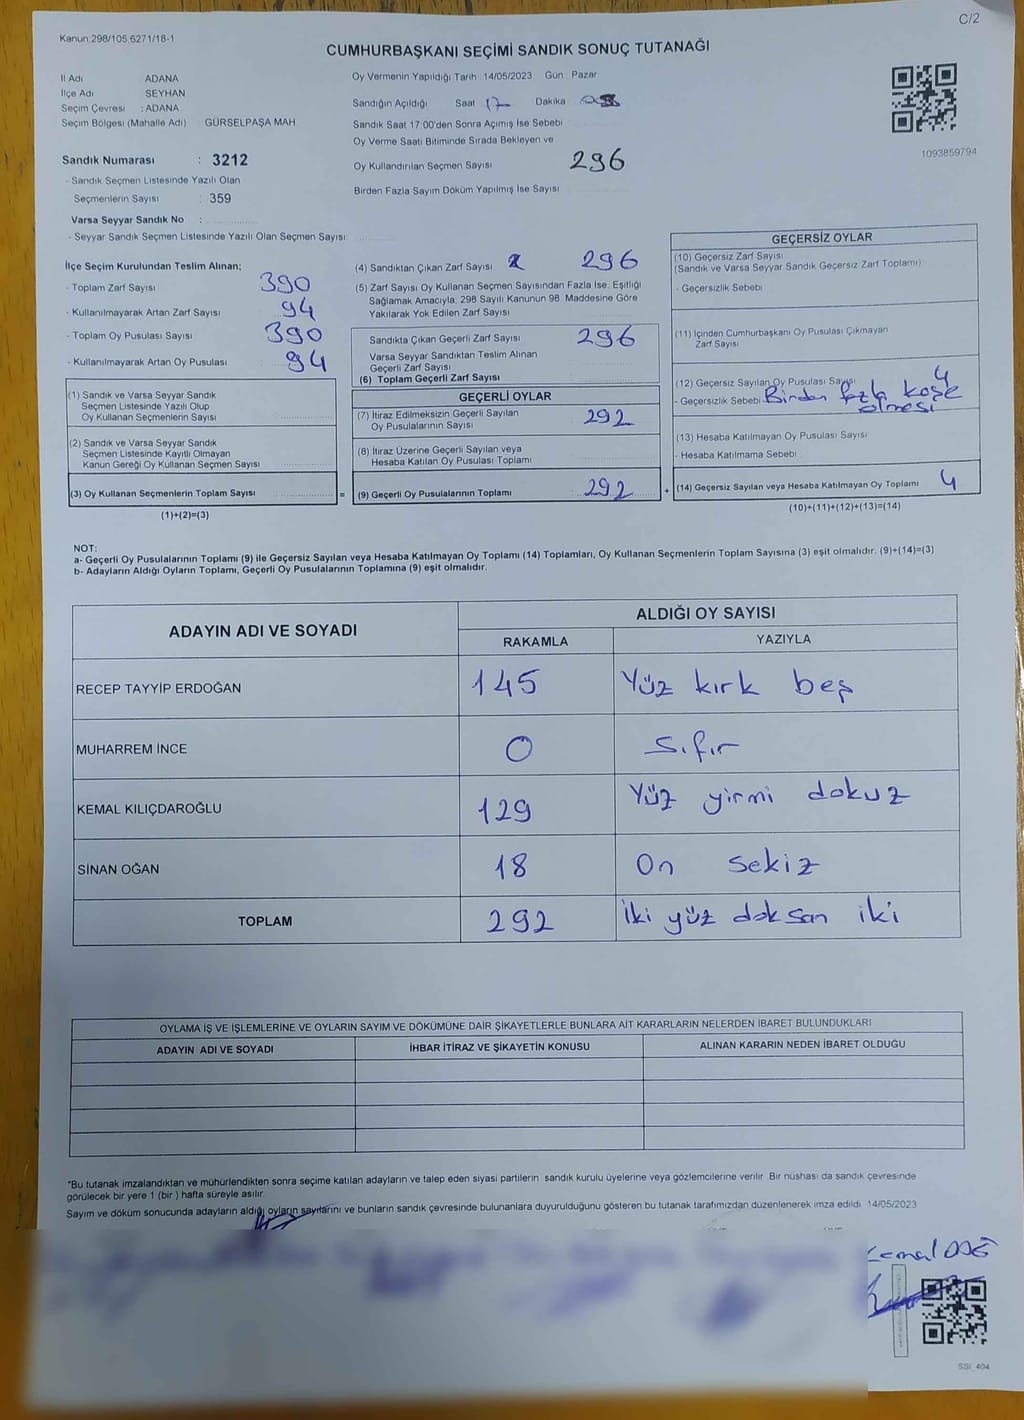 C/2
Kanun:298/105,6271/18-1
CUMHURBAŞKANI SEÇİMİ SANDIK SONUÇ TUTANAĞI
İl Adı ADANA
İlçe Adı SEYHAN
Seçim Çevresi : ADANA
Seçim Bölgesi (Mahalle Adı) : GÜRSELPAŞA MAH.
Sandık Numarası : 3212
- Sandık Seçmen Listesinde Yazılı Olan
Seçmenlerin Sayısı : 359
Varsa Seyyar Sandık No :
- Seyyar Sandık Seçmen Listesinde Yazılı Olan Seçmen Sayısı:
Oy Vermenin Yapıldığı Tarih : 14/05/2023 Gün : Pazar
Sandığın Açıldığı Saat 17 Dakika
Sandık Saat 17:00'den Sonra Açımış İse Sebebi
Oy Verme Saati Bitiminde Sırada Bekleyen ve
Oy Kullandırılan Seçmen Sayısı 296
Birden Fazla Sayım Döküm Yapılmış İse Sayısı
1093859794
İlçe Seçim Kurulundan Teslim Alınan;
- Toplam Zarf Sayısı 390
- Kullanılmayarak Artan Zarf Sayısı 94
- Toplam Oy Pusulası Sayısı 390
- Kullanılmayarak Artan Oy Pusulası 94
(1) Sandık ve Varsa Seyyar Sandık
Seçmen Listesinde Yazılı Olup
Oy Kullanan Seçmenlerin Sayısı
(2) Sandık ve Varsa Seyyar Sandık
Seçmen Listesinde Kayıtlı Olmayan
Kanun Gereği Oy Kullanan Seçmen Sayısı
(3) Oy Kullanan Seçmenlerin Toplam Sayısı =
(1)+(2)=(3)
(4) Sandıktan Çıkan Zarf Sayısı 296
(5) Zarf Sayısı Oy Kullanan Seçmen Sayısından Fazla İse, Eşitliği
Sağlamak Amacıyla, 298 Sayılı Kanunun 98. Maddesine Göre
Yakılarak Yok Edilen Zarf Sayısı
Sandıkta Çıkan Geçerli Zarf Sayısı 296
Varsa Seyyar Sandıktan Teslim Alınan
Geçerli Zarf Sayısı
(6) Toplam Geçerli Zarf Sayısı
GEÇERLİ OYLAR
(7) İtiraz Edilmeksizin Geçerli Sayılan
Oy Pusulalarının Sayısı 292
(8) İtiraz Üzerine Geçerli Sayılan veya
Hesaba Katılan Oy Pusulası Toplamı
(9) Geçerli Oy Pusulalarının Toplamı 292 +
GEÇERSİZ OYLAR
(10) Geçersiz Zarf Sayısı
(Sandık ve Varsa Seyyar Sandık Geçersiz Zarf Toplamı)
- Geçersizlik Sebebi
(11) İçinden Cumhurbaşkanı Oy Pusulası Çıkmayan
Zarf Sayısı
(12) Geçersiz Sayılan Oy Pusulası Sayısı 4
- Geçersizlik Sebebi Birden fazla kaşe
olması
(13) Hesaba Katılmayan Oy Pusulası Sayısı
- Hesaba Katılmama Sebebi
(14) Geçersiz Sayılan veya Hesaba Katılmayan Oy Toplamı 4
(10)+(11)+(12)+(13)=(14)
NOT:
a- Geçerli Oy Pusulalarının Toplamı (9) ile Geçersiz Sayılan veya Hesaba Katılmayan Oy Toplamı (14) Toplamları, Oy Kullanan Seçmenlerin Toplam Sayısına (3) eşit olmalıdır. (9)+(14)=(3)
b- Adayların Aldığı Oyların Toplamı, Geçerli Oy Pusulalarının Toplamına (9) eşit olmalıdır.
ADAYIN ADI VE SOYADI ALDIĞI OY SAYISI
RAKAMLA YAZIYLA
RECEP TAYYİP ERDOĞAN 145 Yüz kırk beş
MUHARREM İNCE 0 Sıfır
KEMAL KILIÇDAROĞLU 129 Yüz yirmi dokuz
SİNAN OĞAN 18 On sekiz
TOPLAM 292 İki yüz doksan iki
OYLAMA İŞ VE İŞLEMLERİNE VE OYLARIN SAYIM VE DÖKÜMÜNE DAİR ŞİKAYETLERLE BUNLARA AİT KARARLARIN NELERDEN İBARET BULUNDUKLARI
ADAYIN ADI VE SOYADI İHBAR İTİRAZ VE ŞİKAYETİN KONUSU ALINAN KARARIN NEDEN İBARET OLDUĞU
*Bu tutanak imzalandıktan ve mühürlendikten sonra seçime katılan adayların ve talep eden siyasi partilerin sandık kurulu üyelerine veya gözlemcilerine verilir. Bir nüshası da sandık çevresinde
görülecek bir yere 1 (bir) hafta süreyle asılır.
Sayım ve döküm sonucunda adayların aldığı oyların sayılarını ve bunların sandık çevresinde bulunanlara duyurulduğunu gösteren bu tutanak tarafımızdan düzenlenerek imza edildi. 14/05/2023
Kemal
SSİ_404